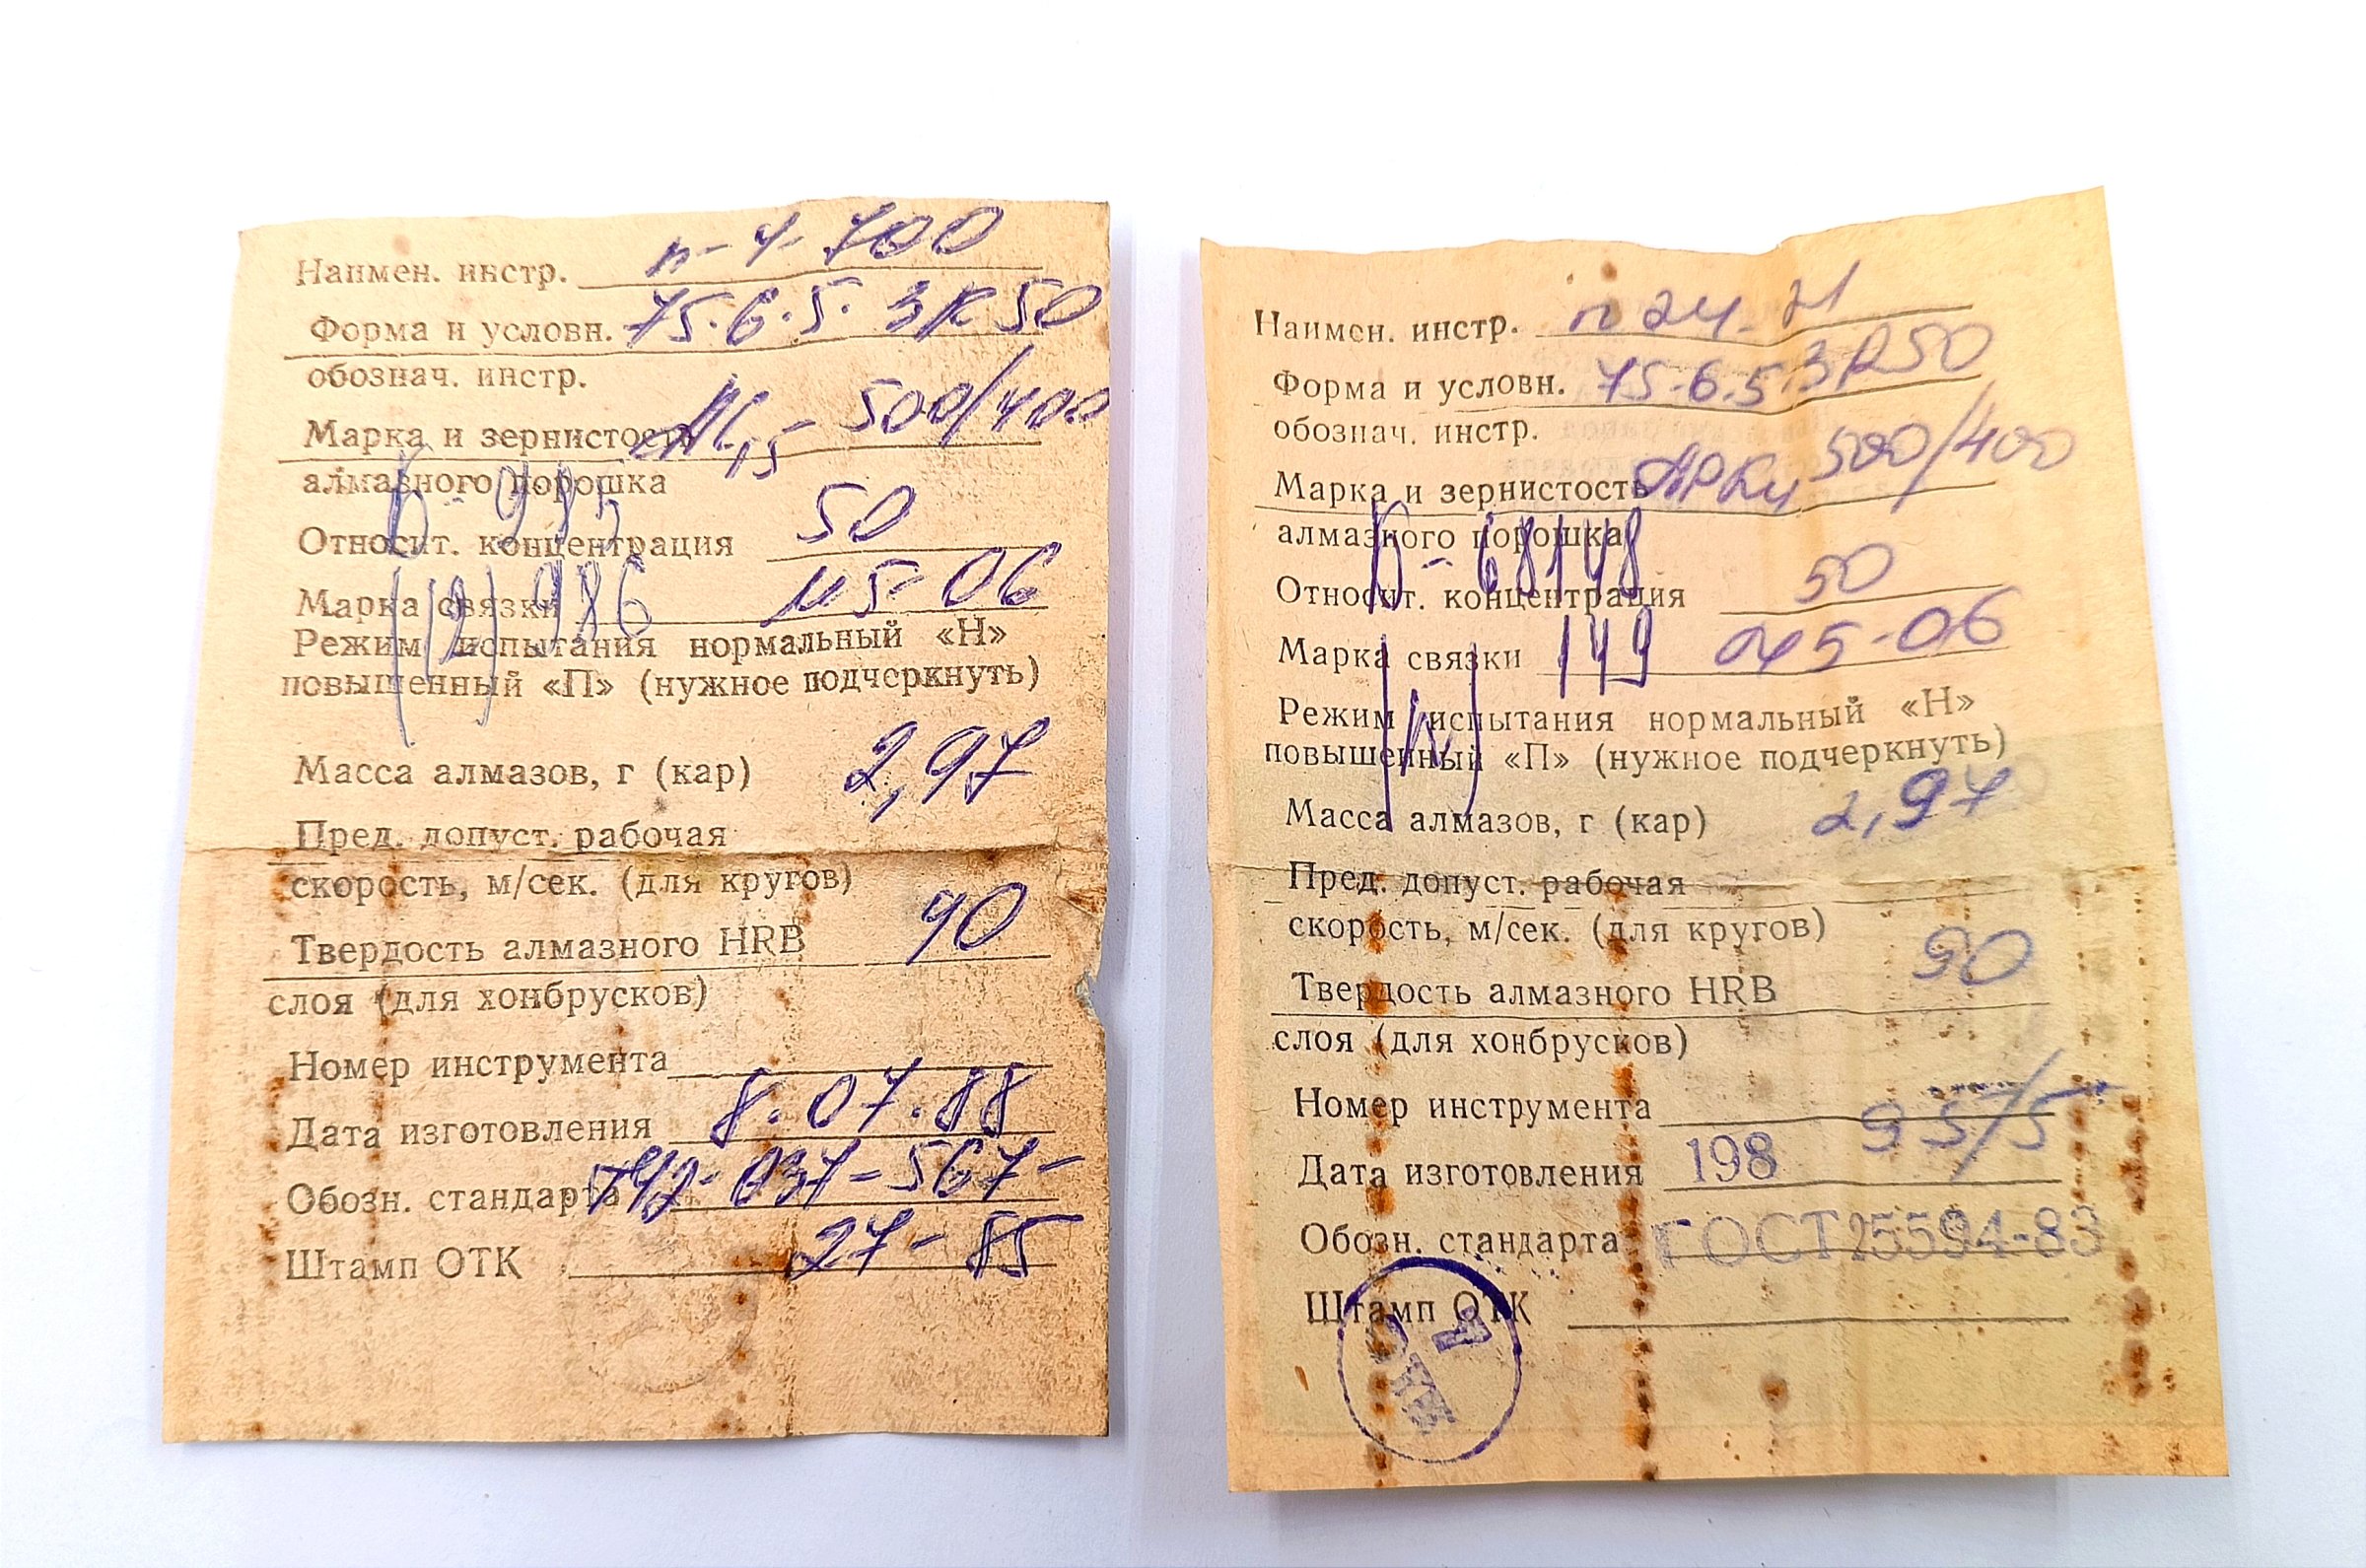 Наимен. инстр. п-4-700
Форма и условн. 75.6.5. 3К 50
обознач. инстр.
Марка и зернистость 500/400
алмазного порошка
Относит. концентрация 50
Марка связки М5-06
Режим испытания нормальный «Н»
повышенный «П» (нужное подчеркнуть)
Масса алмазов, г (кар) 2,97
Пред. допуст. рабочая
скорость, м/сек. (для кругов)
Твердость алмазного HRB 90
слоя (для хонбрусков)
Номер инструмента
Дата изготовления 8.07.88
Обозн. стандарта ТУ2-037-567-
Штамп ОТК 27-85
Наимен. инстр.
Форма и условн. 75.6.5.3К50
обознач. инстр.
Марка и зернистость АРК4 500/400
алмазного порошка
Б-68148
Относит. концентрация 50
Марка связки 149 М5-06
Режим испытания нормальный «Н»
повышенный «П» (нужное подчеркнуть)
Масса алмазов, г (кар) 2,97
Пред. допуст. рабочая
скорость, м/сек. (для кругов)
Твердость алмазного HRB 90
слоя (для хонбрусков)
Номер инструмента
Дата изготовления 198
Обозн. стандарта ГОСТ 25594-83
Штамп ОТК